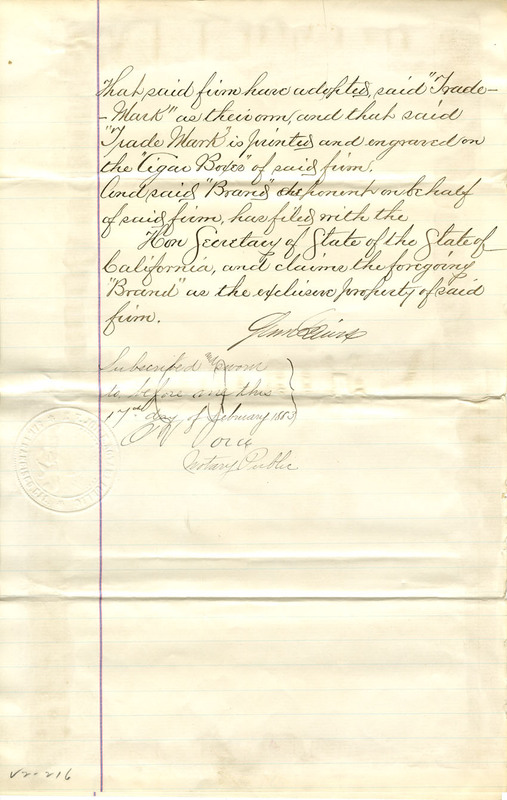 That said firm have adopted, said "Trade-
-Mark" as their own, and that said
"Trade Mark" is printed and engraved on
the "Cigar Boxes" of said firm.
And said "Brand" deponent on behalf
of said firm, has filed with the
Hon Secretary of State of the State of
California, and claims the foregoing
"Brand" as the exclusive property of said
firm.
Subscribed and sworn
to before me this
17th day of February 1883
Notary Public